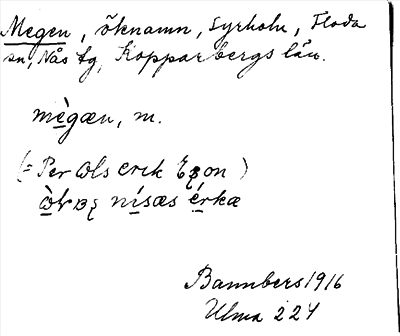 Megen, öknamn, Syrholn, Floda
sn, Nås tg, Kopparbergs län.
mègæn, m.
(= Per Ols Erik Ezon)
nísæs érkæ
Bannbers 1916
Ulma 224